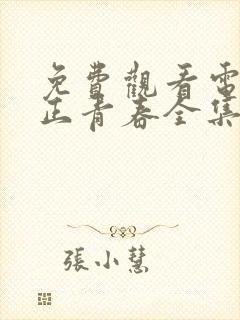 免費觀看電
正青春全集
張小慧